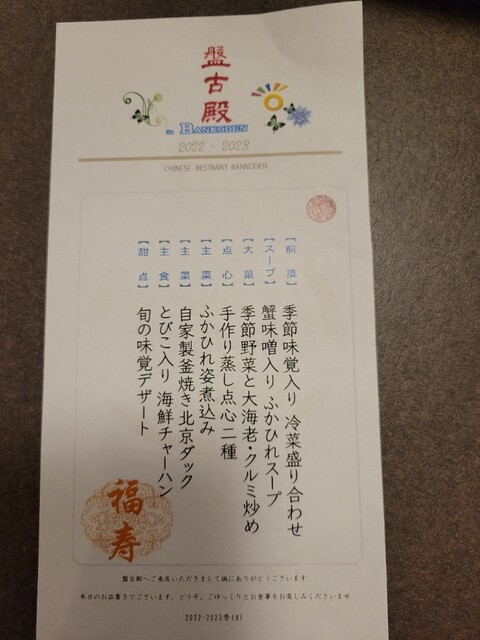 盤古殿
in BANKODEN
2022 - 2023
CHINESE RESTRANT BANKODEN
【前菜】 季節味覚入り 冷菜盛り合わせ
【スープ】 蟹味噌入り ふかひれスープ
【大菜】 季節野菜と大海老・クルミ炒め
【点心】 手作り蒸し点心 二種
【主菜】 ふかひれ姿煮込み
【主菜】 自家製釜焼き北京ダック
【主食】 とびこ入り 海鮮チャーハン
【甜点】 旬の味覚デザート
福寿
盤古殿へご来店いただきまして誠にありがとうございます
本日のお品書きでございます。どうぞ、ごゆっくりとお食事をお楽しみくださいませ